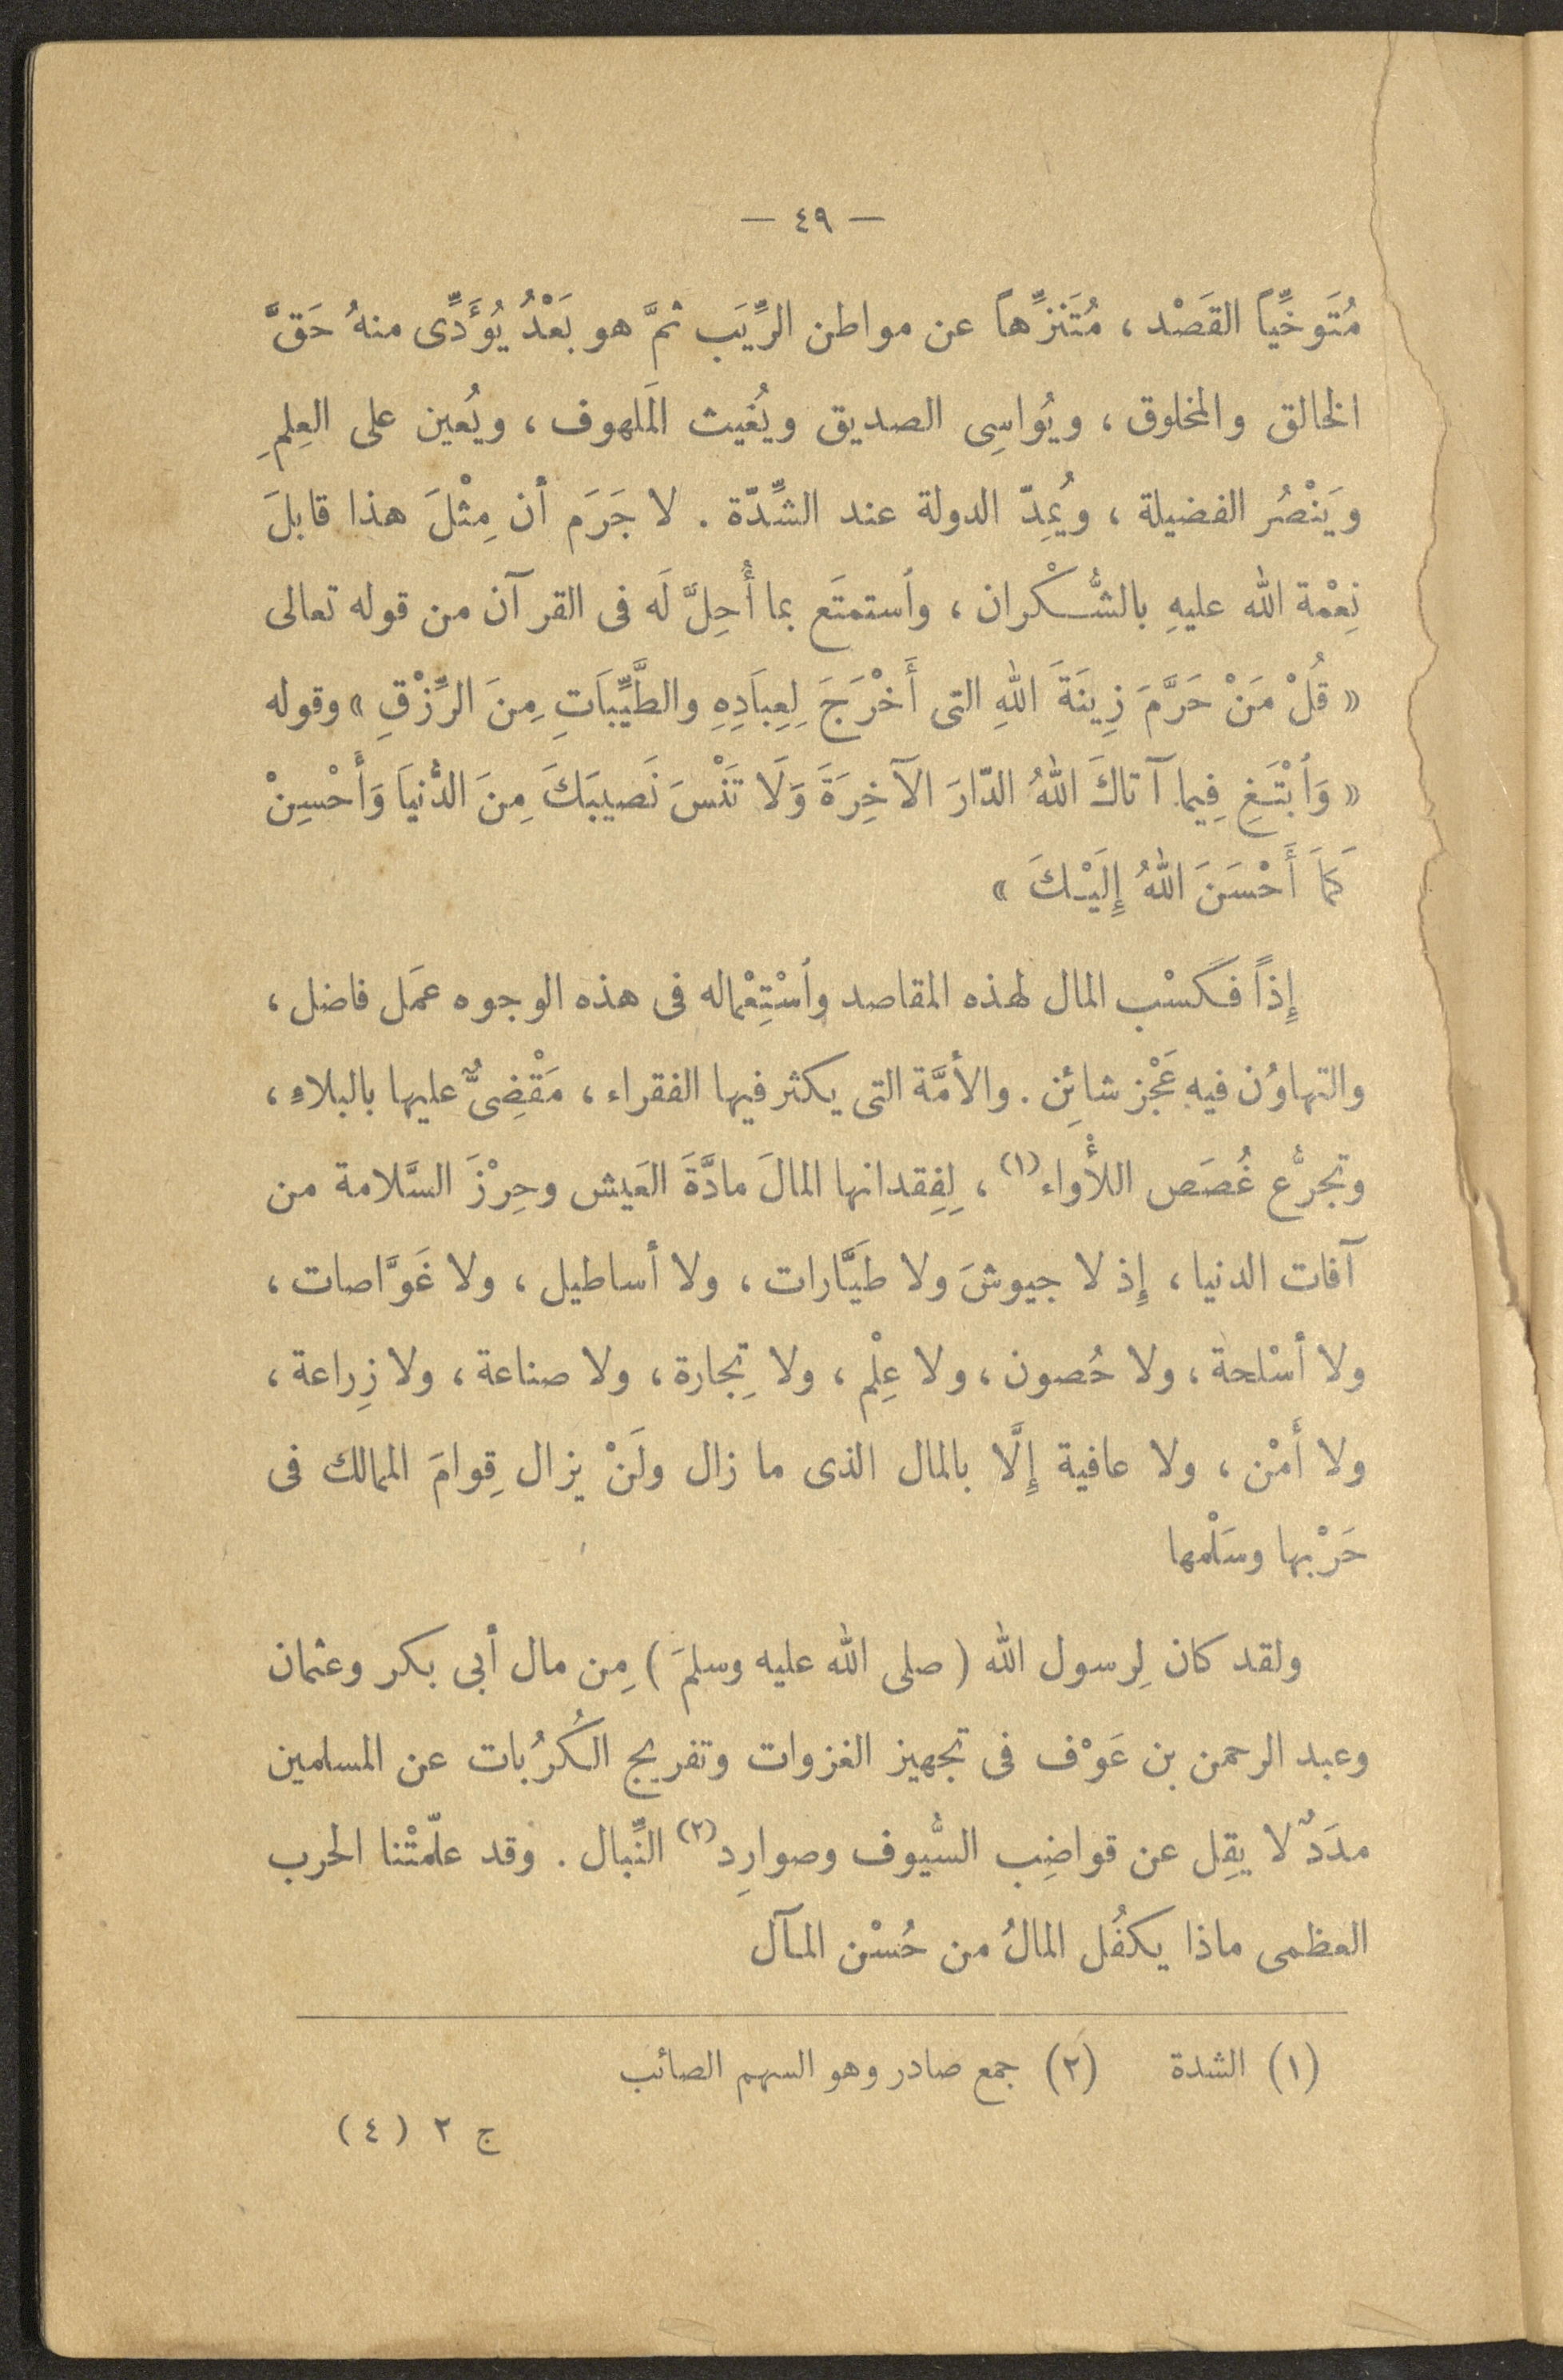 — ٤٩ —
مُتَوخِّياً القَصْد ، مُتَنَزِّهاً عن مواطن الرِّيَب ثمَّ هو بَعْدُ يُؤَدِّى منهُ حَقَّ
الخالق والمخلوق ، ويُواسِى الصديق ويُغيث المَلهوف ، ويُعين على العِلمِ
ويَنْصُر الفضيلة ، ويُمِدّ الدولة عند الشِّدّة . لا جَرَم أن مِثْلَ هذا قابلَ
نِعْمة الله عليهِ بالشُّكْران ، واستمتَع بما أُحِلَّ لَه فى القرآن من قوله تعالى
« قُلْ مَنْ حَرَّمَ زِينَةَ اللهِ التى أَخْرَجَ لِعِبَادِهِ والطَّيِّبَاتِ مِنَ الرِّزْقِ » وقوله
« وَابْتَغِ فِيما آتاكَ اللهُ الدّارَ الآخِرَةَ وَلَا تَنْسَ نَصيبَكَ مِنَ الدُّنيَا وَأَحْسِنْ
كَمَا أَحْسَنَ اللهُ إِلَيْكَ »
إِذاً فكَسْب المال لهذه المقاصد واسْتِعْماله فى هذه الوجوه عمَل فاضل ،
والتهاوُن فيهِ عَجْز شائِن . والأمَّة التى يكثر فيها الفقراء ، مَقْضِىٌّ عليها بالبلاءِ ،
وتجرُّع غُصَص اللأْواء (١) ، لِفِقدانها المالَ مادَّةَ العَيش وحِرْزَ السَّلامة من
آفات الدنيا ، إِذ لا جيوشَ ولا طَيَّارات ، ولا أساطيل ، ولا غَوَّاصات ،
ولا أسْلحة ، ولا حُصون ، ولا عِلْم ، ولا تِجارة ، ولا صناعة ، ولا زِراعة ،
ولا أَمْن ، ولا عافية إِلَّا بالمال الذى ما زال ولَنْ يزال قِوامَ الممالك فى
حَرْبها وسَلْمها
ولقد كان لِرسول الله ( صلى الله عليه وسلمَ ) مِن مال أبى بكر وعثمان
وعبد الرحمن بن عَوْف فى تجهيز الغزوات وتفريج الكُرُبات عن المسلمين
مدَدٌ لا يقِل عن قواضِب السُّيوف وصوارِد (٢) النِّبال . وقد علّمتْنا الحرب
العظمى ماذا يكفُل المالُ من حُسْن المآل
(١) الشدة (٢) جمع صادر وهو السهم الصائب
ج ٢ (٤)